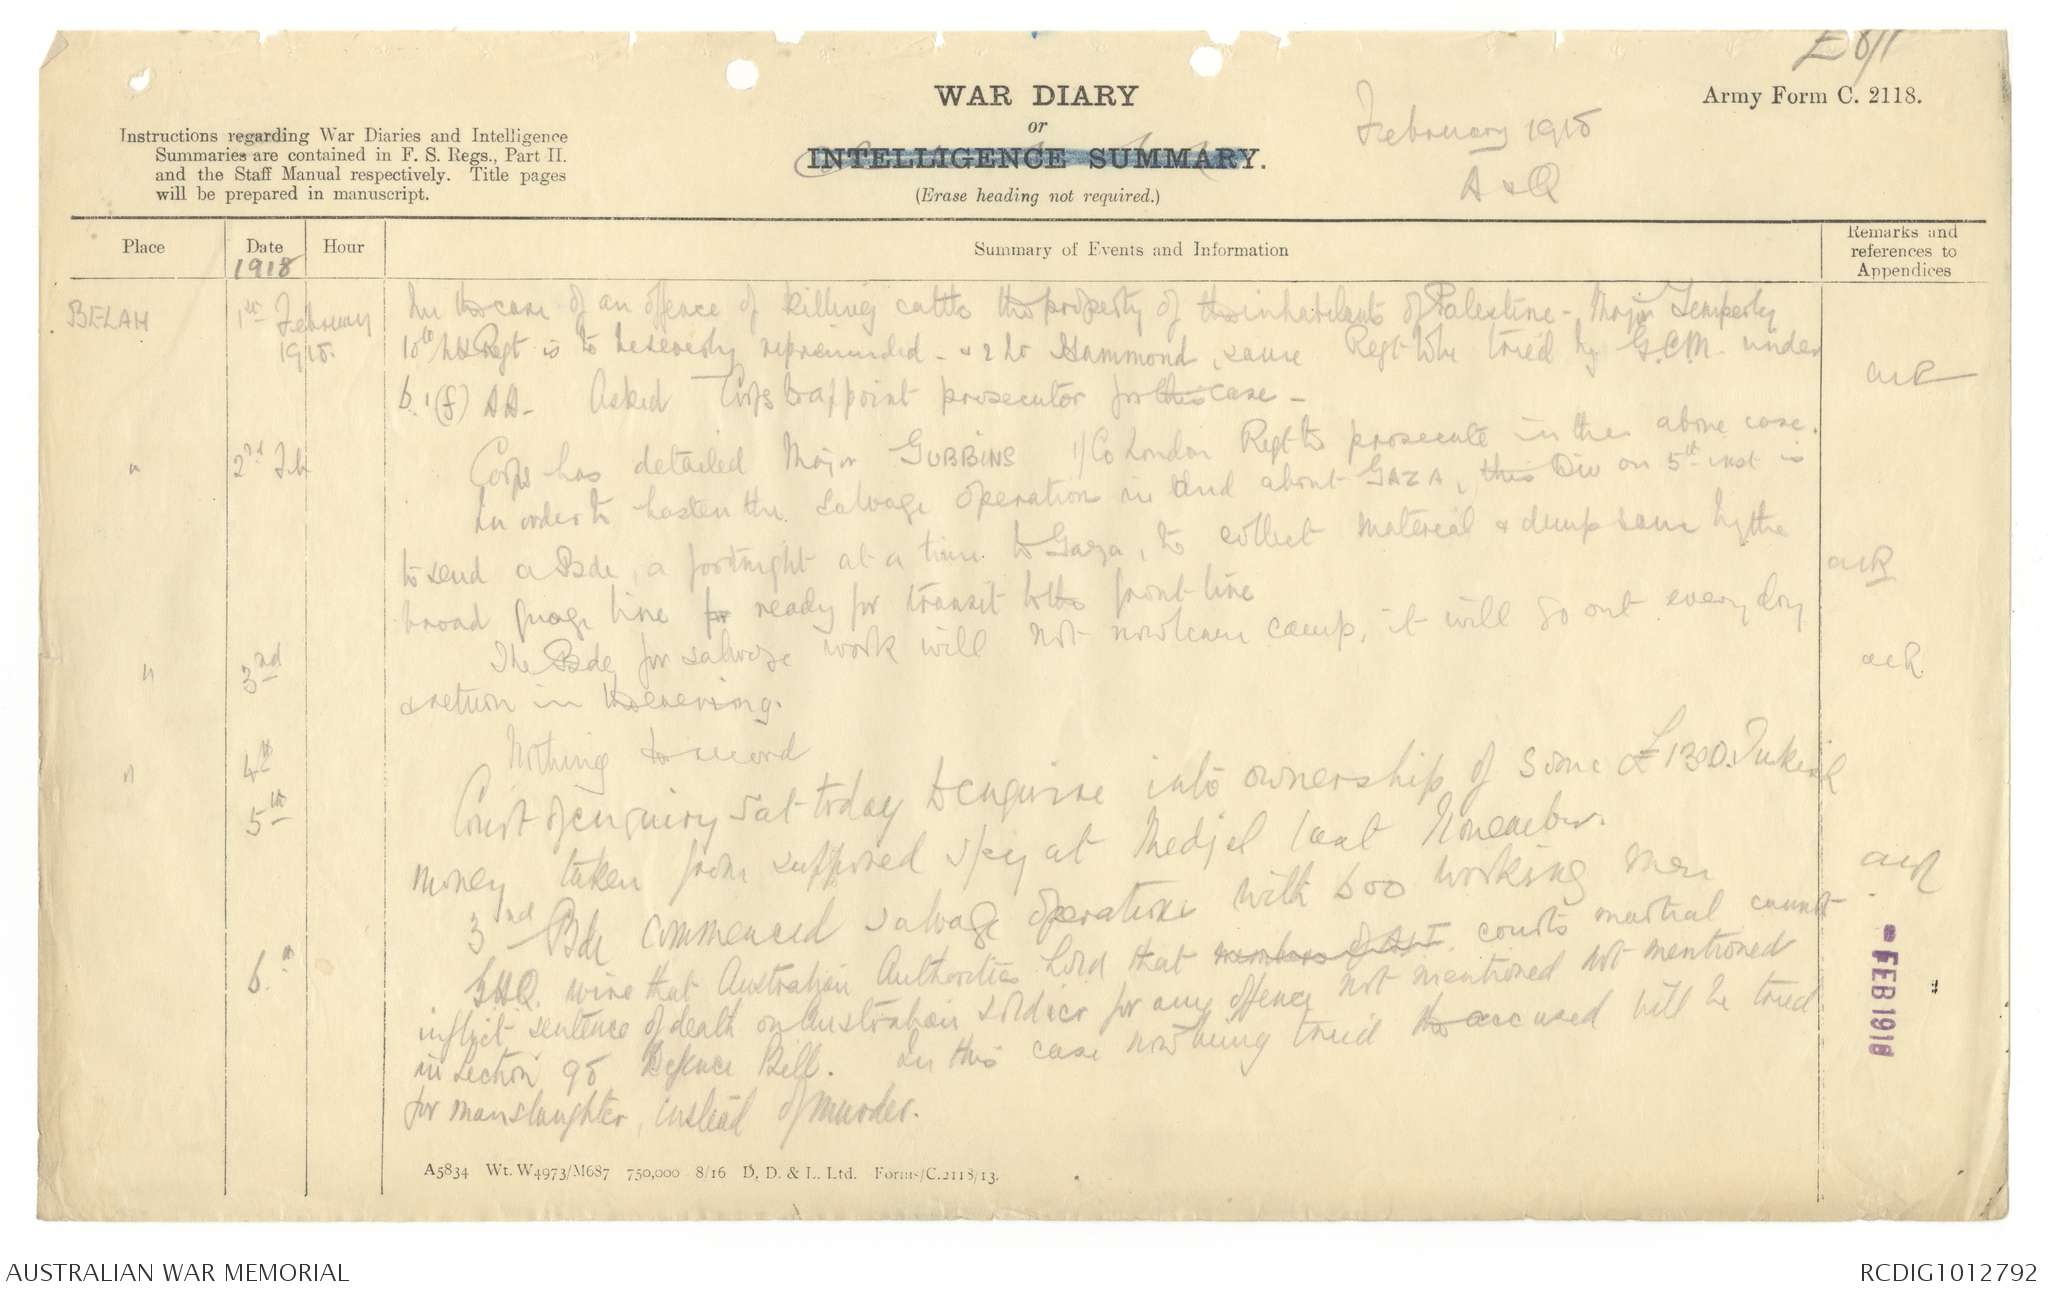 E 8/1
WAR DIARY
or
INTELLIGENCE SUMMARY.
(Erase heading not required.)
Army Form C. 2118.
Instructions regarding War Diaries and Intelligence
Summaries are contained in F. S. Regs., Part II.
and the Staff Manual respectively. Title pages
will be prepared in manuscript.
February 1918
A & Q
Place
Date
1918
Hour
Summary of Events and Information
Remarks and
references to
Appendices
BELAH
1st February
1918.
In the case of an offence of killing cattle the property of the inhabitants of Palestine - Major Temperly
10th LH Regt is to be severely reprimanded - & 2 Lt Hammond, same Regt to be tried by G.C.M. under
6.1(f) AA - Asked Corps to appoint prosecutor for this case -
"
2nd Feb
Corps has detailed Major GUBBINS 1/Co London Regt to prosecute in the above case.
In order to hasten the salvage operation in and about GAZA, this Div on 5th inst is
to send a Bde, a fortnight at a time to Gaza, to collect material & dump same by the
broad guage line for ready for transit to the front line
"
3rd
The Bde for salvage work will not now leave camp, it will go out every day
& return in the evening.
"
4th
Nothing to record
5th
Court of enquiry sat today to enquire into ownership of some £1300. Turkish
money taken from supposed spy at Medjel last November.
3rd Bde commenced salvage operations with 600 working men
6th
GHQ. wire that Australian Authorities hold that members of AIF courts martial cannot
inflict sentence of death on Australian soldier for any offence not mentioned not mentioned
in Section 98 Defence Bill. In this case now being tried the accused will be tried
for manslaughter, instead of murder.
FEB 1918
A5834 Wt. W4973/M687 750,000 8/16 D. D. & L. Ltd. Forms/C.2118/13.
AUSTRALIAN WAR MEMORIAL
RCDIG1012792